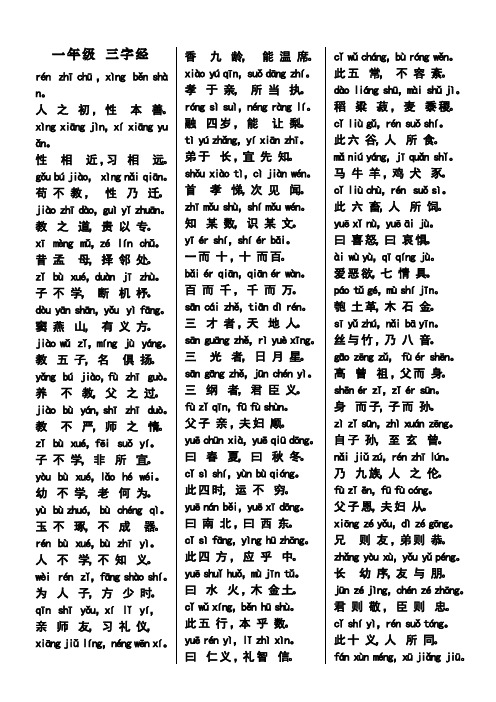 一年级 三字经
rén zhī chū , xìng běn shà
n。
人 之 初, 性 本 善。
xìng xiāng jìn, xí xiāng yu
ǎn.
性 相 近, 习 相 远。
gǒu bú jiào, xìng nǎi qiān.
苟 不 教, 性 乃 迁。
jiào zhī dào, guì yǐ zhuān.
教 之 道, 贵 以 专。
xī mèng mǔ, zé lín chǔ.
昔 孟 母, 择 邻 处。
zǐ bù xué, duàn jī zhù.
子 不 学, 断 机 杼。
dòu yān shān, yǒu yì fāng.
窦 燕 山, 有 义 方。
jiào wǔ zǐ, míng jù yáng.
教 五 子, 名 俱 扬。
yǎng bú jiào, fù zhī guò.
养 不 教, 父 之 过。
jiào bù yán, shī zhī duò.
教 不 严, 师 之 惰。
zǐ bù xué, fēi suǒ yí.
子 不 学, 非 所 宜。
yòu bù xué, lǎo hé wéi.
幼 不 学, 老 何 为。
yù bù zhuó, bù chéng qì.
玉 不 琢, 不 成 器。
rén bù xué, bù zhī yì.
人 不 学, 不 知 义。
wèi rén zǐ, fāng shào shí.
为 人 子, 方 少 时。
qīn shī yǒu, xí lǐ yí,
亲 师 友, 习 礼 仪。
xiāng jiǔ líng, néng wēn xí.
香 九 龄, 能 温 席。
xiào yú qīn, suǒ dāng zhí.
孝 于 亲, 所 当 执。
róng sì suì, néng ràng lí.
融 四岁, 能 让 梨。
tì yú zhǎng, yí xiān zhī.
弟于 长, 宜 先 知。
shǒu xiào tì, cì jiàn wén.
首 孝 悌, 次 见 闻。
zhī mǒu shù, shí mǒu wén.
知 某 数, 识 某 文。
yī ér shí, shí ér bǎi.
一 而 十, 十 而 百。
bǎi ér qiān, qiān ér wàn.
百 而 千, 千 而 万。
sān cái zhě, tiān dì rén.
三 才 者, 天 地 人。
sān guāng zhě, rì yuè xīng.
三 光 者, 日 月 星。
sān gāng zhě, jūn chén yì.
三 纲 者, 君 臣 义。
fù zǐ qīn, fū fù shùn.
父子 亲, 夫妇 顺。
yuē chūn xià, yuē qiū dōng.
曰 春 夏, 曰 秋 冬。
cǐ sì shí, yùn bù qióng.
此四时, 运 不 穷。
yuē nán běi, yuē xī dōng.
曰 南 北, 曰 西 东。
cǐ sì fāng, yìng hū zhōng.
此 四 方, 应 乎 中。
yuē shuǐ huǒ, mù jīn tǔ.
曰 水 火, 木 金土。
cǐ wǔ xíng, běn hū shù.
此五 行, 本 乎 数。
yuē rén yì, lǐ zhì xìn.
曰 仁义, 礼智 信。
cǐ wǔ cháng, bù róng wěn.
此五 常, 不 容 紊。
dào liáng shū, mài shǔ jì.
稻 粱 菽, 麦 黍稷。
cǐ liù gǔ, rén suǒ shí.
此 六 谷, 人 所 食。
mǎ niú yáng, jī quǎn shǐ.
马 牛 羊, 鸡 犬 豕。
cǐ liù chù, rén suǒ sì.
此 六 畜, 人 所 饲。
yuē xǐ nù, yuē āi jù.
曰 喜怒, 曰 哀惧。
ài wù yù, qī qíng jù.
爱恶欲, 七 情 具。
páo tǔ gé, mù shí jīn.
匏 土革, 木 石 金。
sī yǔ zhú, nǎi bā yīn.
丝与竹, 乃 八 音。
gāo zēng zǔ, fù ér shēn.
高 曾 祖, 父而 身。
shēn ér zǐ, zǐ ér sūn.
身 而子, 子而 孙。
zì zǐ sūn, zhì xuán zēng.
自子 孙, 至玄 曾。
nǎi jiǔ zú, rén zhī lún.
乃 九族, 人 之 伦。
fù zǐ ēn, fū fù cóng.
父子恩, 夫妇 从。
xiōng zé yǒu, dì zé gōng.
兄 则 友, 弟则 恭。
zhǎng yòu xù, yǒu yǔ péng.
长 幼 序, 友 与 朋。
jūn zé jìng, chén zé zhōng.
君 则 敬, 臣 则 忠。
cǐ shí yì, rén suǒ tóng.
此 十 义, 人 所 同。
fán xùn méng, xū jiǎng jiū.